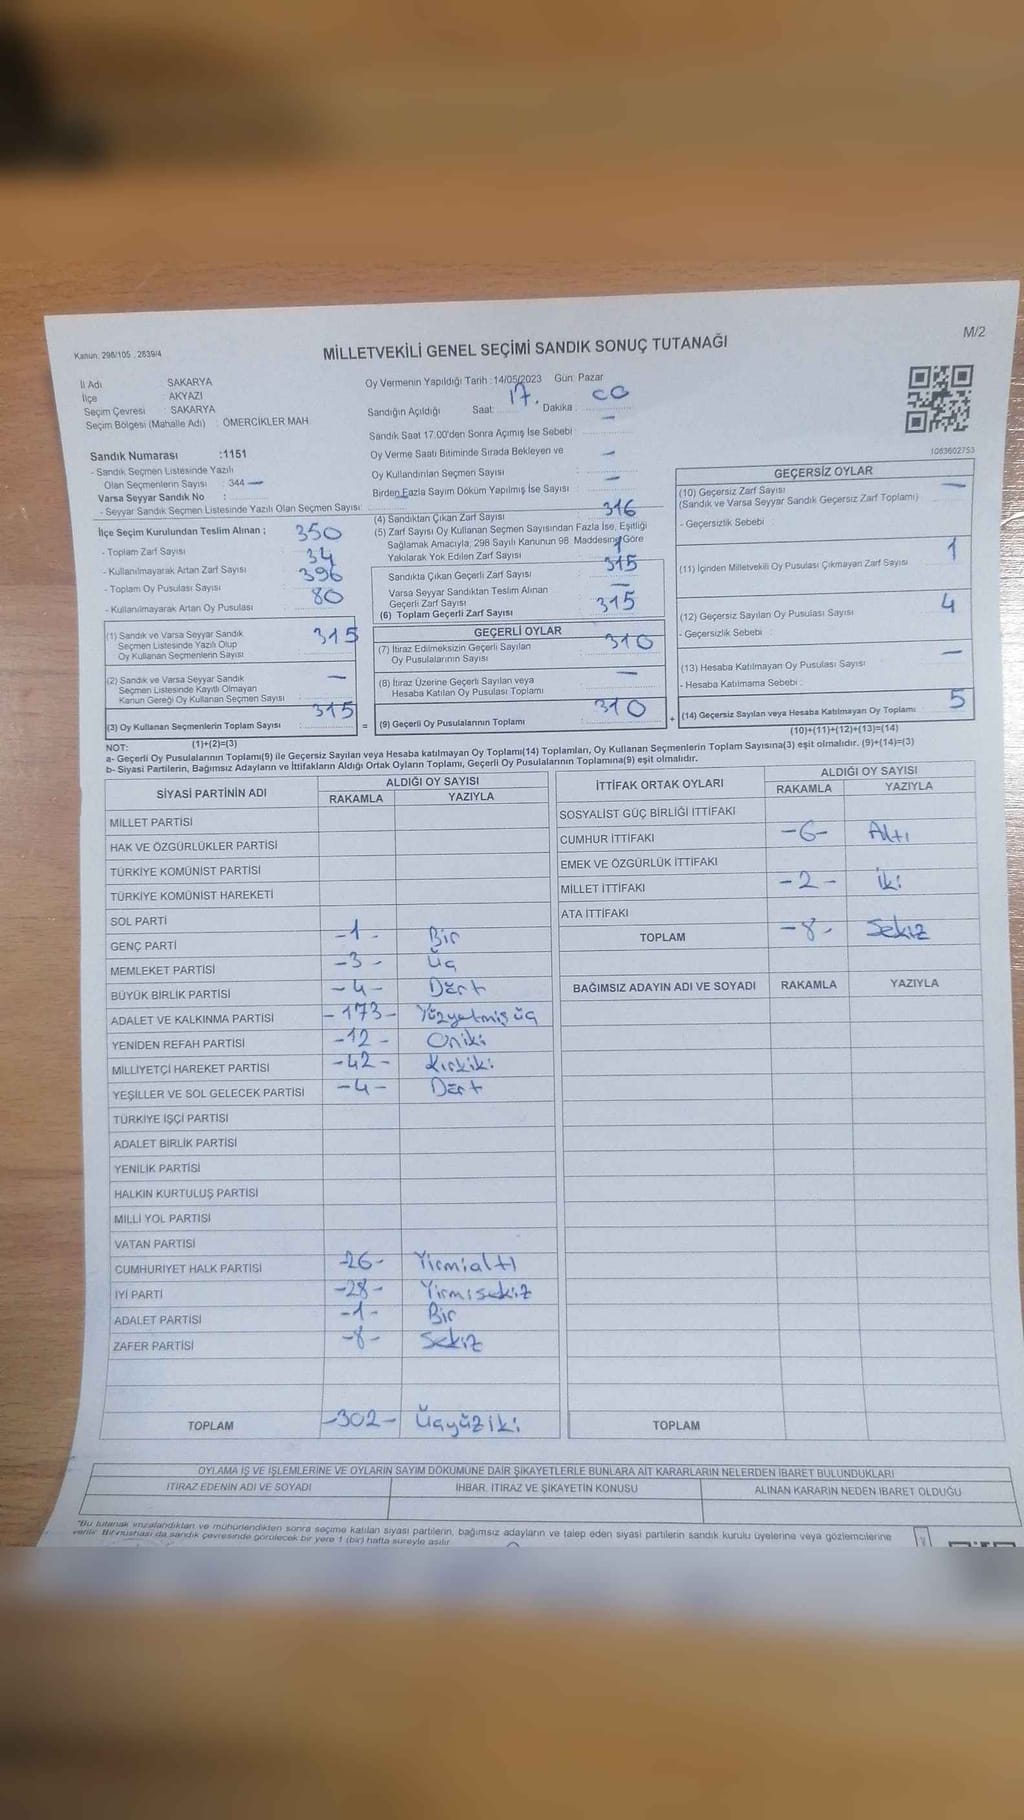 M/2
Kanun: 298/105 , 2839/4
MİLLETVEKİLİ GENEL SEÇİMİ SANDIK SONUÇ TUTANAĞI
İl Adı : SAKARYA
İlçe : AKYAZI
Seçim Çevresi : SAKARYA
Seçim Bölgesi (Mahalle Adı) : ÖMERCİKLER MAH
Oy Vermenin Yapıldığı Tarih :14/05/2023 Gün: Pazar
Sandığın Açıldığı Saat: 17. Dakika : 00
Sandık Saat 17.00'den Sonra Açımış İse Sebebi : —
Oy Verme Saati Bitiminde Sırada Bekleyen ve
Oy Kullandırılan Seçmen Sayısı : —
Birden Fazla Sayım Döküm Yapılmış İse Sayısı : —
1063602753
Sandık Numarası :1151
- Sandık Seçmen Listesinde Yazılı
Olan Seçmenlerin Sayısı : 344 —
Varsa Seyyar Sandık No :
- Seyyar Sandık Seçmen Listesinde Yazılı Olan Seçmen Sayısı:
İlçe Seçim Kurulundan Teslim Alınan ;
- Toplam Zarf Sayısı : 350
- Kullanılmayarak Artan Zarf Sayısı : 34
- Toplam Oy Pusulası Sayısı : 396
- Kullanılmayarak Artan Oy Pusulası : 80
(1) Sandık ve Varsa Seyyar Sandık
Seçmen Listesinde Yazılı Olup
Oy Kullanan Seçmenlerin Sayısı : 315
(2) Sandık ve Varsa Seyyar Sandık
Seçmen Listesinde Kayıtlı Olmayan
Kanun Gereği Oy Kullanan Seçmen Sayısı : —
(3) Oy Kullanan Seçmenlerin Toplam Sayısı : 315
(1)+(2)=(3)
(4) Sandıktan Çıkan Zarf Sayısı : 316
(5) Zarf Sayısı Oy Kullanan Seçmen Sayısından Fazla İse, Eşitliği
Sağlamak Amacıyla, 298 Sayılı Kanunun 98. Maddesine Göre
Yakılarak Yok Edilen Zarf Sayısı : 1
Sandıkta Çıkan Geçerli Zarf Sayısı : 315
Varsa Seyyar Sandıktan Teslim Alınan
Geçerli Zarf Sayısı : —
(6) Toplam Geçerli Zarf Sayısı : 315
GEÇERLİ OYLAR
(7) İtiraz Edilmeksizin Geçerli Sayılan
Oy Pusulalarının Sayısı : 310
(8) İtiraz Üzerine Geçerli Sayılan veya
Hesaba Katılan Oy Pusulası Toplamı : —
= (9) Geçerli Oy Pusulalarının Toplamı : 310
GEÇERSİZ OYLAR
(10) Geçersiz Zarf Sayısı : —
(Sandık ve Varsa Seyyar Sandık Geçersiz Zarf Toplamı)
- Geçersizlik Sebebi :
(11) İçinden Milletvekili Oy Pusulası Çıkmayan Zarf Sayısı : 1
(12) Geçersiz Sayılan Oy Pusulası Sayısı : 4
- Geçersizlik Sebebi :
(13) Hesaba Katılmayan Oy Pusulası Sayısı : —
- Hesaba Katılmama Sebebi :
+ (14) Geçersiz Sayılan veya Hesaba Katılmayan Oy Toplamı : 5
(10)+(11)+(12)+(13)=(14)
NOT:
a- Geçerli Oy Pusulalarının Toplamı(9) ile Geçersiz Sayılan veya Hesaba katılmayan Oy Toplamı(14) Toplamları, Oy Kullanan Seçmenlerin Toplam Sayısına(3) eşit olmalıdır. (9)+(14)=(3)
b- Siyasi Partilerin, Bağımsız Adayların ve İttifakların Aldığı Ortak Oyların Toplamı, Geçerli Oy Pusulalarının Toplamına(9) eşit olmalıdır.
SİYASİ PARTİNİN ADI ALDIĞI OY SAYISI
RAKAMLA YAZIYLA
MİLLET PARTİSİ
HAK VE ÖZGÜRLÜKLER PARTİSİ
TÜRKİYE KOMÜNİST PARTİSİ
TÜRKİYE KOMÜNİST HAREKETİ
SOL PARTİ
GENÇ PARTİ -1- Bir
MEMLEKET PARTİSİ -3- Üç
BÜYÜK BİRLİK PARTİSİ -4- Dört
ADALET VE KALKINMA PARTİSİ -173- Yüzyetmişüç
YENİDEN REFAH PARTİSİ -12- Oniki
MİLLİYETÇİ HAREKET PARTİSİ -42- Kırkiki
YEŞİLLER VE SOL GELECEK PARTİSİ -4- Dört
TÜRKİYE İŞÇİ PARTİSİ
ADALET BİRLİK PARTİSİ
YENİLİK PARTİSİ
HALKIN KURTULUŞ PARTİSİ
MİLLİ YOL PARTİSİ
VATAN PARTİSİ
CUMHURİYET HALK PARTİSİ -26- Yirmialtı
İYİ PARTİ -28- Yirmisekiz
ADALET PARTİSİ -1- Bir
ZAFER PARTİSİ -8- Sekiz
TOPLAM -302- Üçyüziki
İTTİFAK ORTAK OYLARI ALDIĞI OY SAYISI
RAKAMLA YAZIYLA
SOSYALİST GÜÇ BİRLİĞİ İTTİFAKI
CUMHUR İTTİFAKI -6- Altı
EMEK VE ÖZGÜRLÜK İTTİFAKI
MİLLET İTTİFAKI -2- İki
ATA İTTİFAKI
TOPLAM -8- Sekiz
BAĞIMSIZ ADAYIN ADI VE SOYADI RAKAMLA YAZIYLA
TOPLAM
OYLAMA İŞ VE İŞLEMLERİNE VE OYLARIN SAYIM DÖKÜMÜNE DAİR ŞİKAYETLERLE BUNLARA AİT KARARLARIN NELERDEN İBARET BULUNDUKLARI
İTİRAZ EDENİN ADI VE SOYADI İHBAR, İTİRAZ VE ŞİKAYETİN KONUSU ALINAN KARARIN NEDEN İBARET OLDUĞU
"Bu tutanak imzalandıktan ve mühürlendikten sonra seçime katılan siyasi partilerin, bağımsız adayların ve talep eden siyasi partilerin sandık kurulu üyelerine veya gözlemcilerine
verilir. Bir nüshası da sandık çevresinde görülecek bir yere 1 (bir) hafta süreyle asılır.